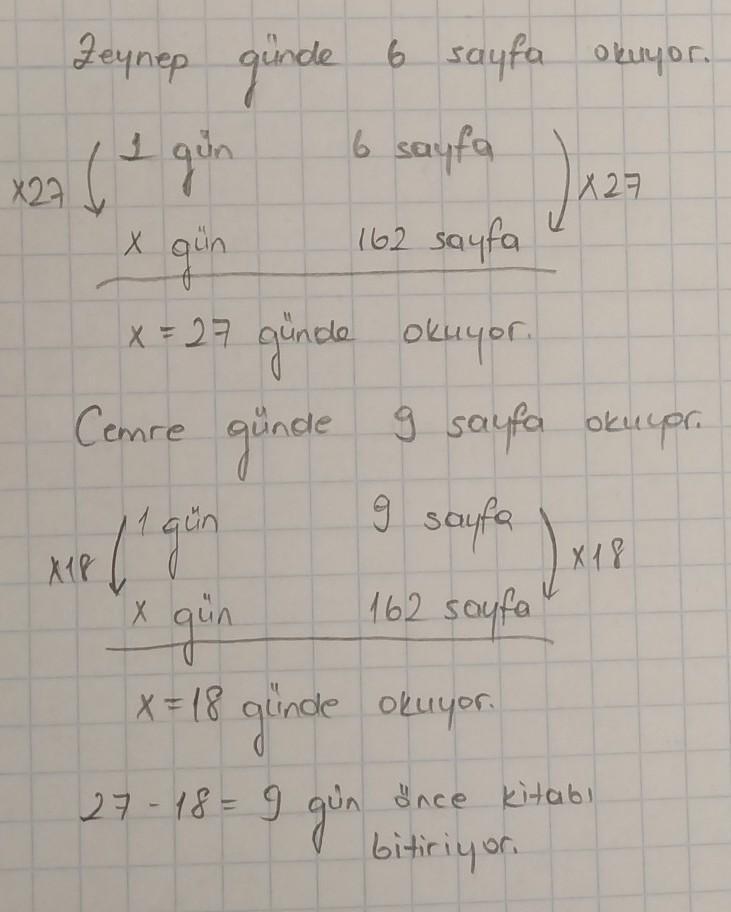 Zeynep günde 6 sayfa okuyor.
1 gün 6 sayfa
x27 x27
x gün 162 sayfa
x = 27 günde okuyor.
Cemre günde 9 sayfa okuyor.
1 gün 9 sayfa
x18 x18
x gün 162 sayfa
x = 18 günde okuyor.
27 - 18 = 9 gün önce kitabı
bitiriyor.